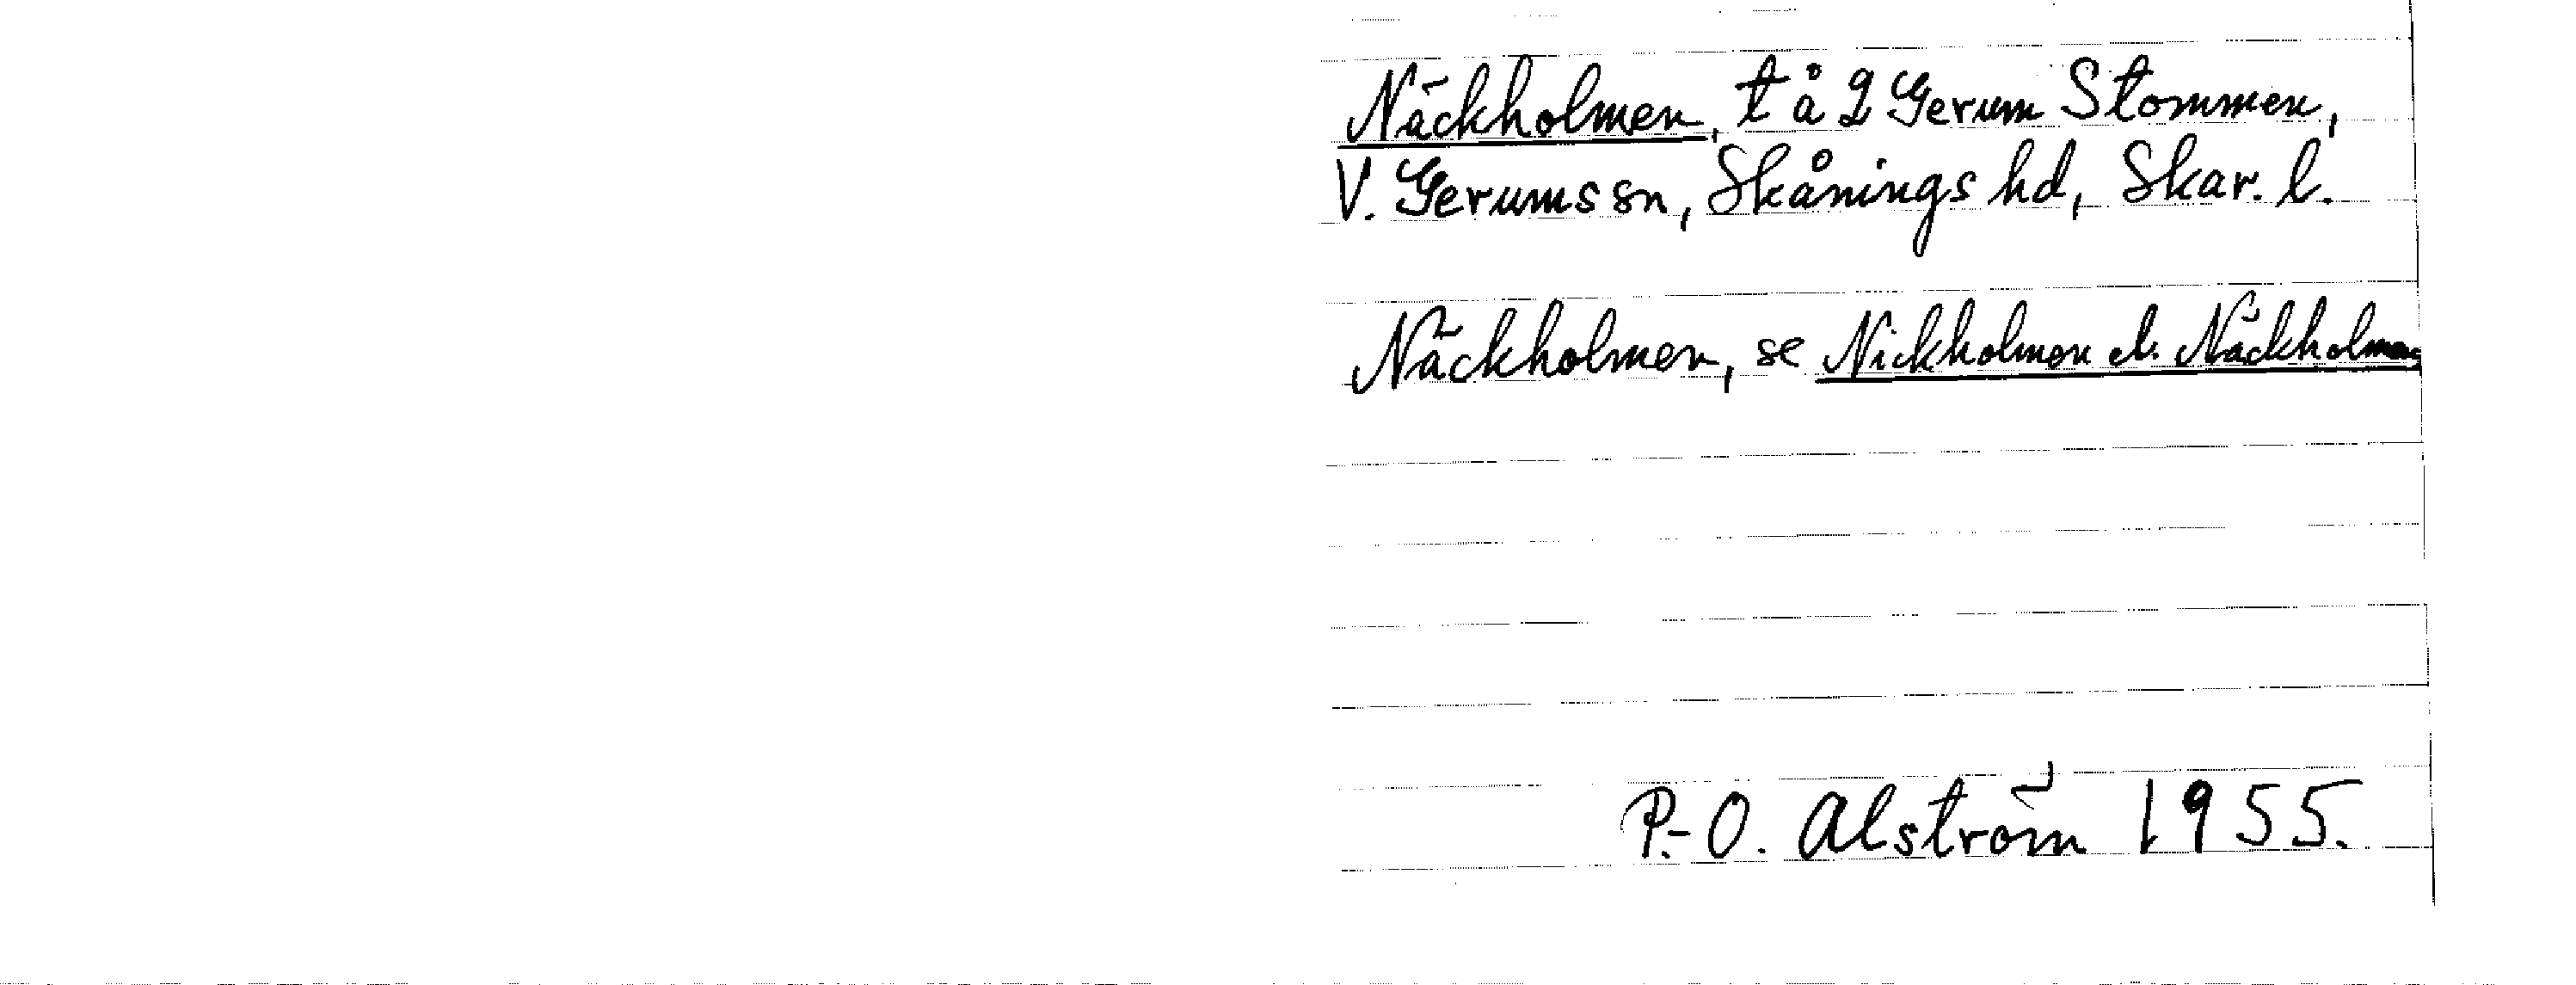 Näckholmen, t å 2 Gerum Stommen,
V. Gerums sn, Skånings hd, Skar. l.
Näckholmen, se Nickholmen el. Näckholmen
P.-O. Alström 1955.